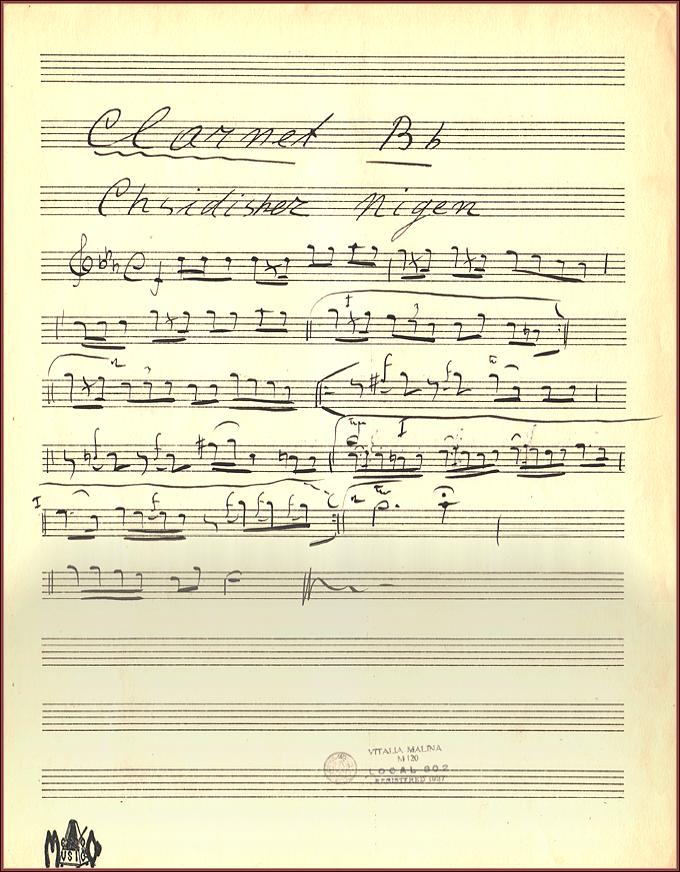 Clarnet Bb
Chsidisher Nigen
I
I
I
VITALIA MALINA
M 120
LOCAL 802
REGISTERED 1937
MUSICO